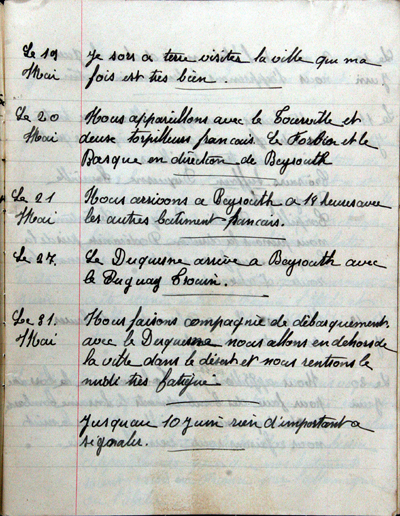 Le 19 Je sors a terre visiter la ville qui ma
Mai fois est tres bien.
Le 20 Nous appareillons avec le Tourville et
Mai deux torpilleurs francais le Forbin et le
Basque en direction de Beyrouth
Le 21 Nous arrivons a Beyrouth a 18 heures avec
Mai les autres batiment francais.
Le 27. Le Duquesne arrive a Beyrouth avec
le Duguay Trouin.
Le 31. Nous faisons compagnie de débarquement
Mai avec le Duquesne nous allons en dehors de
la ville dans le désert et nous rentrons le
très fatigue
Jusquau 10 Juin rien d'important a
signaler.